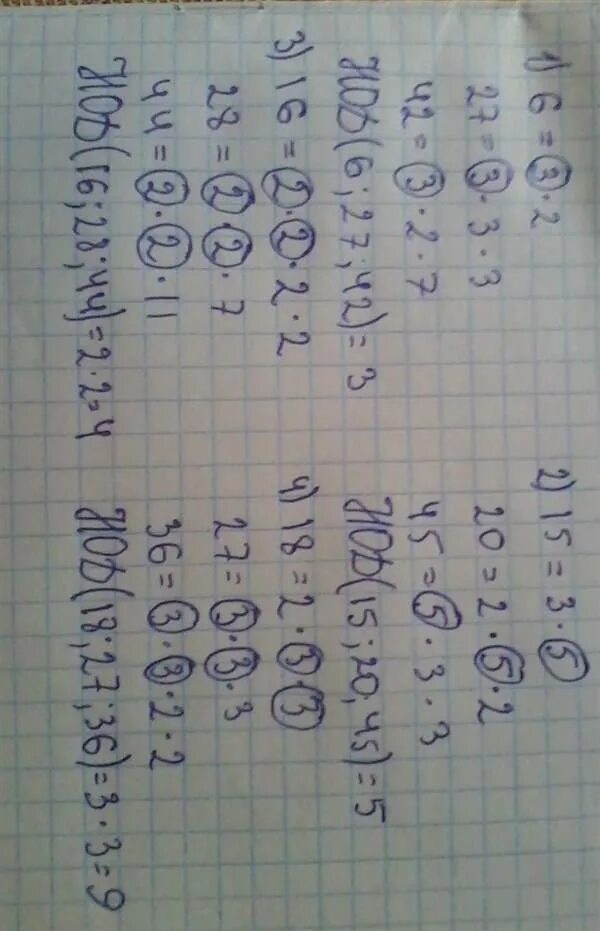 1) 6 = 3·2
27 = 3·3·3
42 = 3·2·7
НОД(6;27;42) = 3
2) 15 = 3·5
20 = 2·5·2
45 = 5·3·3
НОД(15;20;45) = 5
3) 16 = 2·2·2·2
28 = 2·2·7
44 = 2·2·11
НОД(16;28;44) = 2·2=4
4) 18 = 2·3·3
27 = 3·3·3
36 = 3·3·2·2
НОД(18;27;36) = 3·3=9